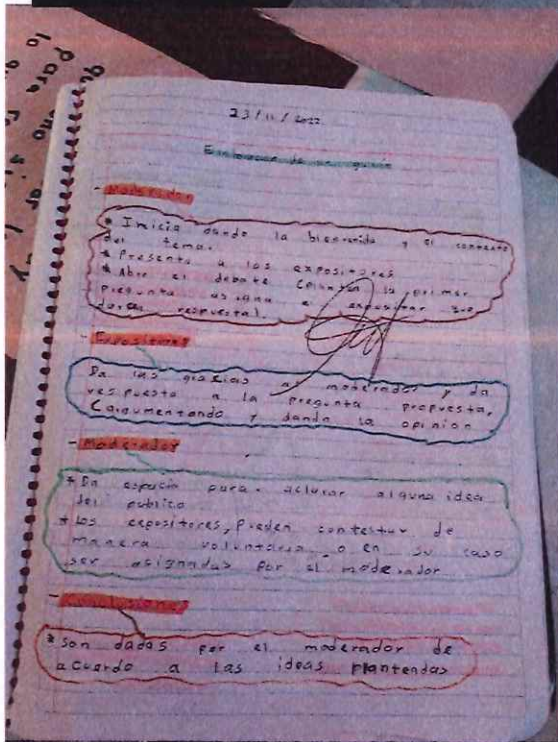 23/11/2022
Elaboración de un guión
- Moderador
* Inicia dando la bienvenida y el contexto
del tema.
* Presenta a los expositores
* Abre el debate (plantea la primer
pregunta asigna el expositor que
dara respuesta).
- Expositores
Da las gracias al moderador y da
respuesta a la pregunta propuesta,
(argumentando y dando la opinion
- Moderador
* Da espacio para aclarar alguna idea
del publico
* Los expositores, pueden contestar de
manera voluntaria o en su caso
ser asignadas por el moderador
- Conclusiones
* Son dadas por el moderador de
acuerdo a las ideas planteadas
para